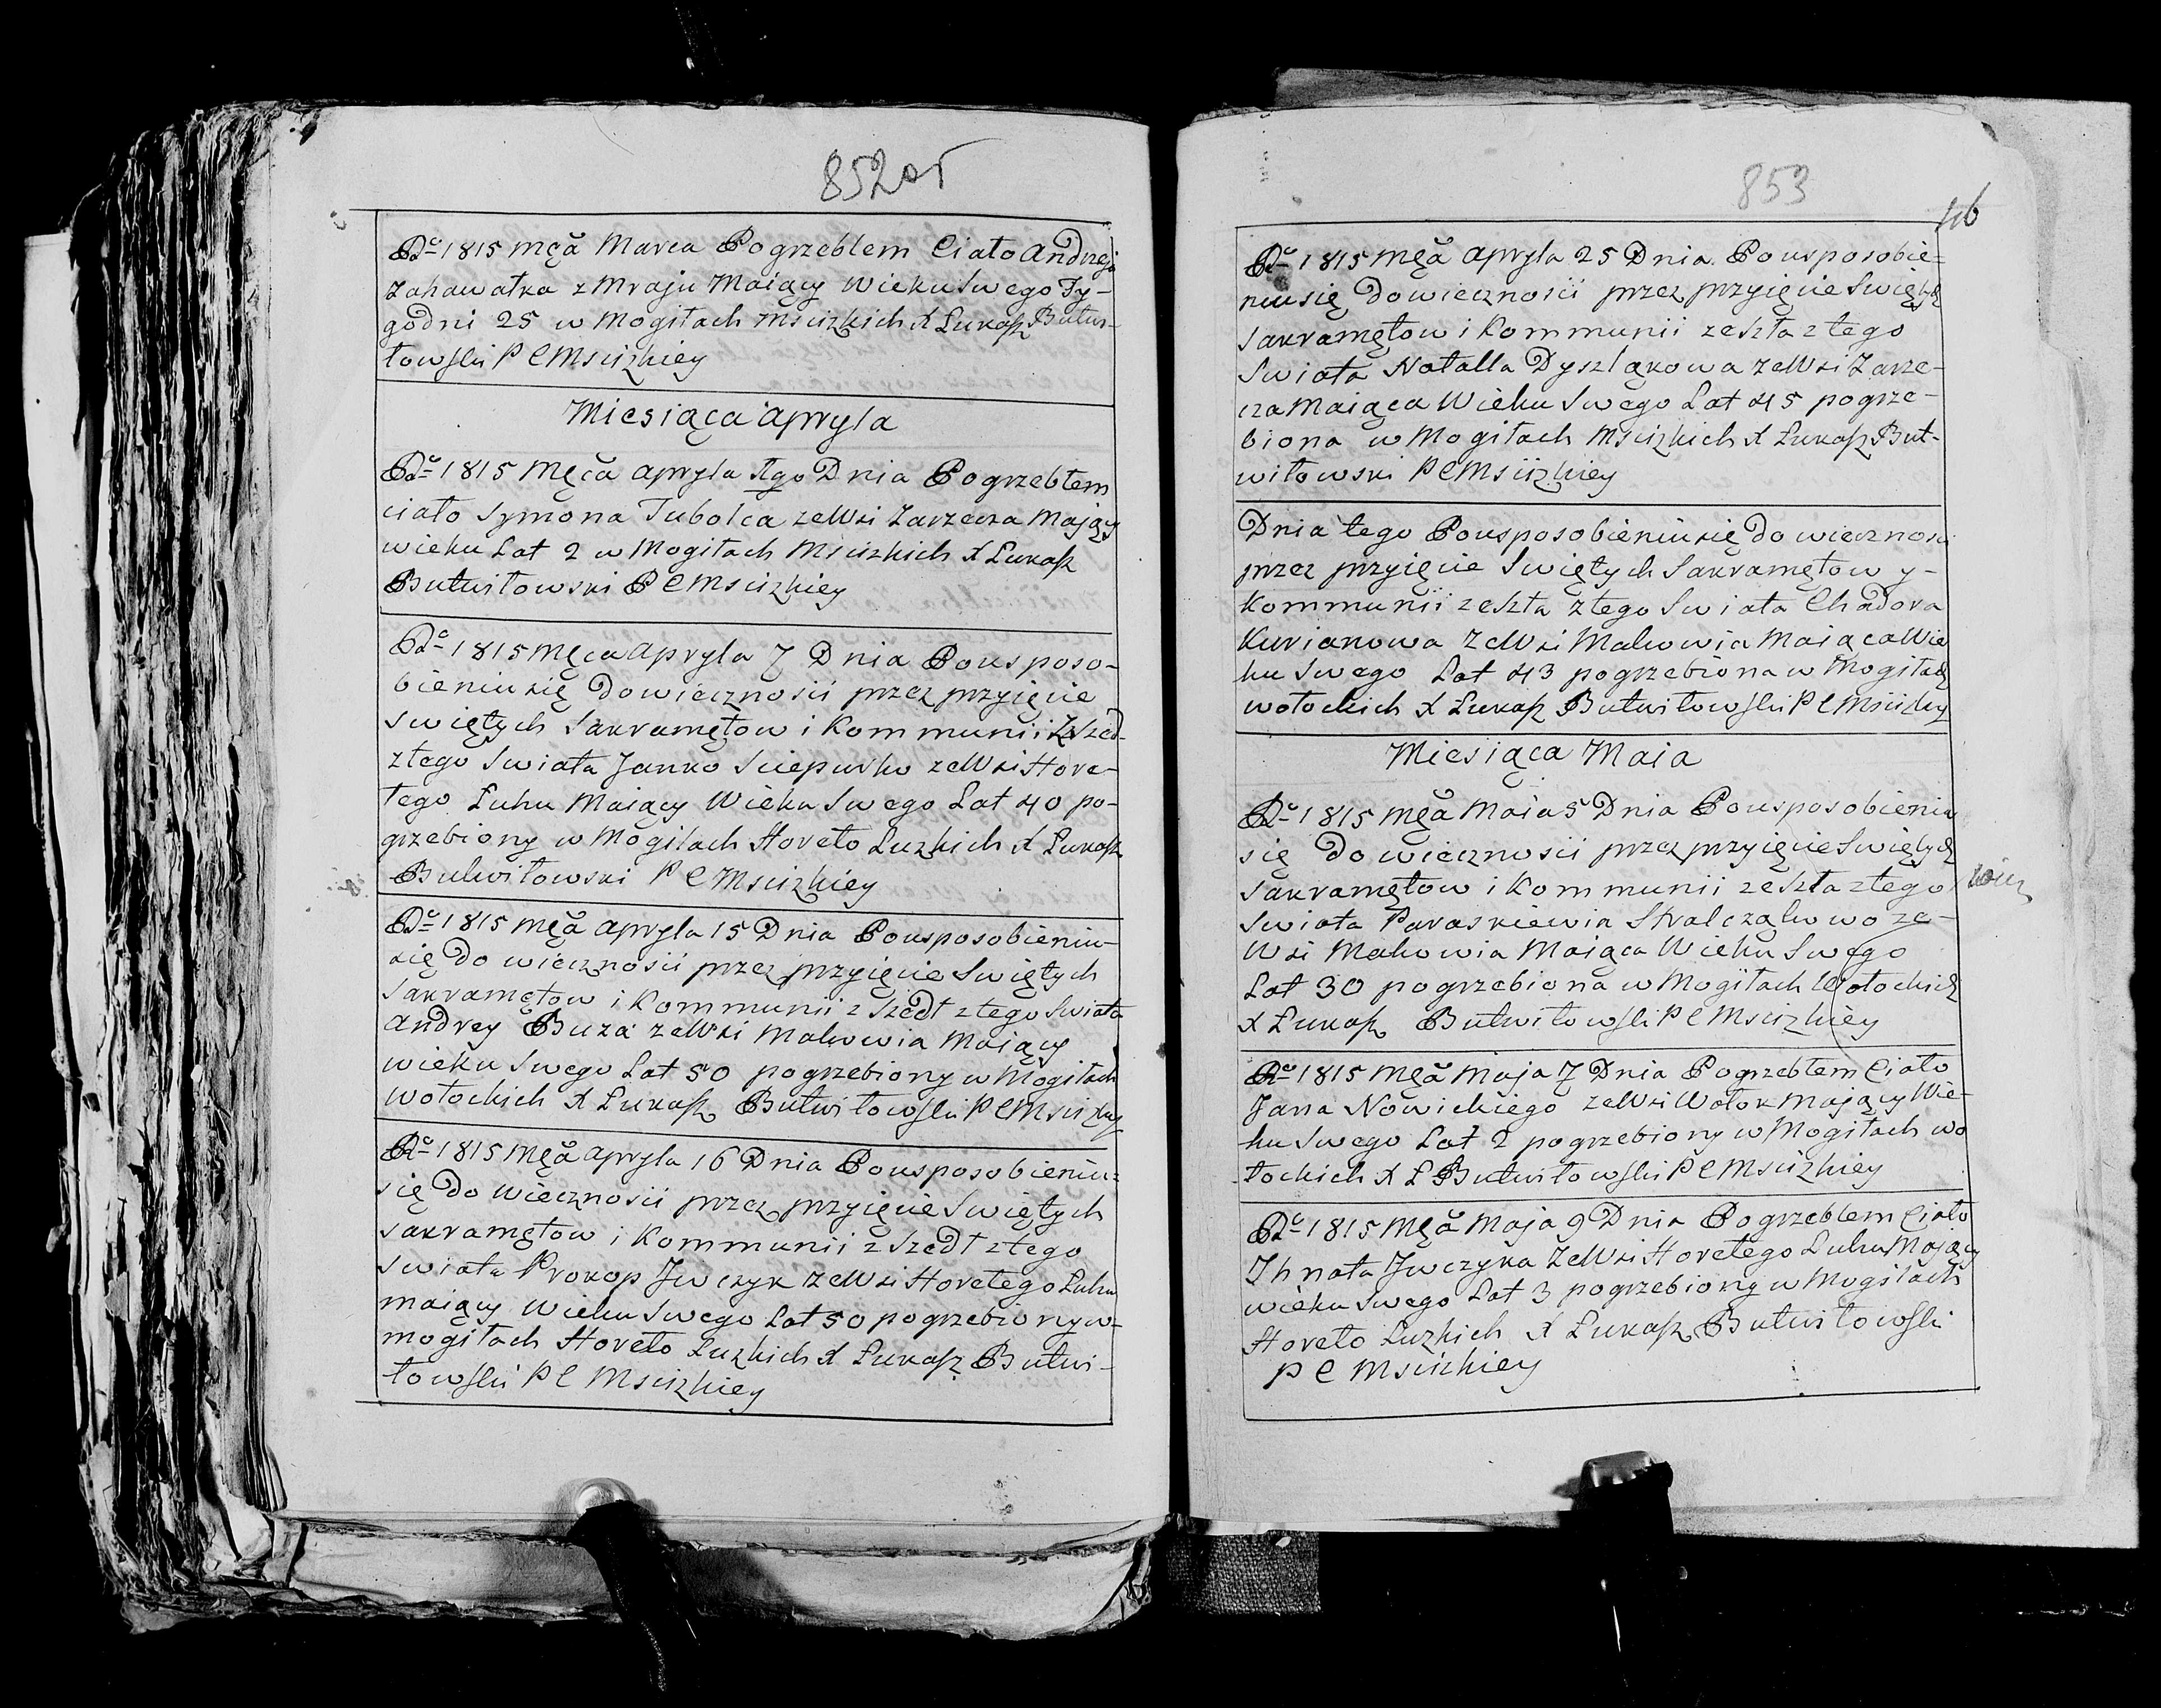 852об
Rº 1815 męca Marca Pogrzebłem Ciało Andrzeja
Zahawałka z Mraju Maiący Wieku Swego Ty-
godni 25 w Mogiłach Mscizkich X Łukasz Butwi-
łowski P C Mscizkiey
Miesiąca apryla
Rº 1815 Męca apryla 1go Dnia Pogrzebłem
ciało Symona Tubolca ze Wsi Zarzecza Mający
wieku Lat 2 w Mogiłach Mscizkich X Łukasz
Butwiłowski P C Mscizkiey
Rº 1815 Męca apryla 7 Dnia Pousposo-
bieniu się do wieczności przez przyięcie
Swiętych Sakramętow i Kommunii Zszed-
z tego Swiata Janko Sciepurko ze Wsi Hore-
łego Łuhu Maiący Wieku Swego Lat 40 po-
grzebiony w Mogiłach Horeło Łuzkich X Łukasz
Butwiłowski P C Mscizkiey
Rº 1815 Męca apryla 15 Dnia Pousposobieniu-
się do wieczności przez przyięcie Swiętych
Sakramętow i Kommunii z Szedł z tego Swiata
Andrey Buza ze Wsi Makowia Maiący
wieku Swego Lat 50 pogrzebiony w Mogiłach
wołockich X Łukasz Butwiłowski P C Mscizkiey
Rº 1815 Męca apryla 16 Dnia Pousposobieniu-
się do wieczności przez przyięcie Swiętych
Sakramętow i Kommunii z Szedł z tego
Swiata Prokop Jwczyk ze Wsi Horełego Łuhu
maiący Wieku Swego Lat 50 pogrzebiony w-
mogiłach Horeło Łuzkich X Łukasz Butwi-
łowski P C Mscizkiey
853
Rº 1815 Męca apryla 25 Dnia Pousposobie-
niu się do wieczności przez przyięcie Swiętych
Sakramętow i Kommunii zeszła z tego
Swiata Natalla Dyszląkowa ze Wsi Zarze-
cza Maiąca Wieku Swego Lat 45 pogrze-
biona w Mogiłach Mscizkich X Łukasz But-
wiłowski P C Mscizkiey
Dnia tego Pousposobieniu się do wieczności
przez przyięcie Swiętych Sakramętow y-
Kommunii zeszła z tego Swiata Chadora
Kurianowa ze Wsi Makowia Maiąca Wie
ku Swego Lat 43 pogrzebiona w Mogiłach
wołockich X Łukasz Butwiłowski P C Mscizkiey
Miesiąca Maia
Rº 1815 Męca Maia 5 Dnia Pousposobieniu
się do wieczności przez przyięcie Swiętych
Sakramętow i Kommunii zeszła z tego
Swiata Paraskiewia Stralcząkowo ze-
Wsi Makowia Maiąca Wieku Swego
Lat 30 pogrzebiona w Mogiłach Wołockich
X Łukasz Butwiłowski P C Mscizkiey
Rº 1815 Męca Maja 7 Dnia Pogrzebłem Ciało
Jana Nowickiego ze Wsi Wołok mający Wie-
ku Swego Lat 2 pogrzebiony w Mogiłach wo
łockich X Ł Butwiłowski P C Mscizkiey
Rº 1815 Męca Maja 9 Dnia Pogrzebłem Ciało
Jhnata Jwczyka ze Wsi Horełego Łuhu Mający
wieku Swego Lat 3 pogrzebiony w Mogiłach
Horeło Łuzkich X Łukasz Butwiłowski
P C Mscizkiey